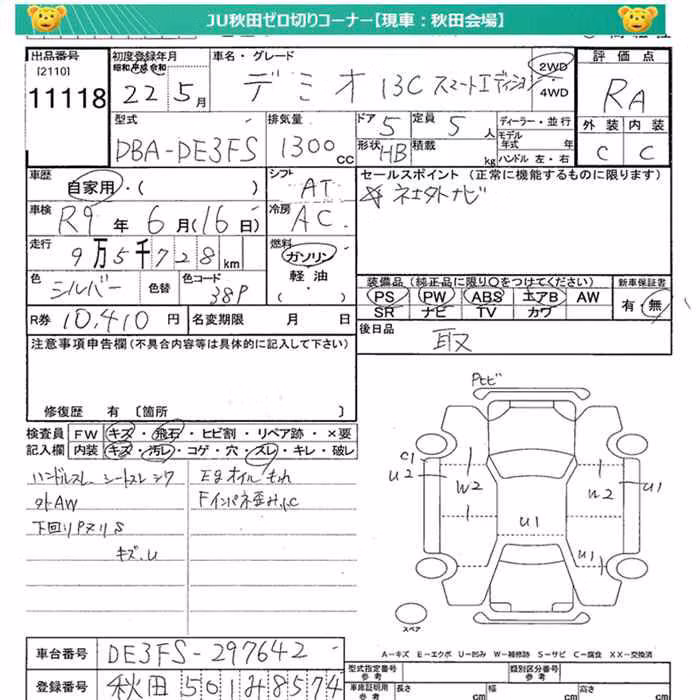 JU秋田ゼロ切りコーナー【現車：秋田会場】
出品番号 初度登録年月 車名・グレード 評価点
[2110] 昭和 平成 令和
11118 22年5月 デミオ 13C スマートエディション 2WD 4WD RA
型式 排気量 ドア 5 定員 5人 ディーラー・並行 外装 内装
DBA-DE3FS 1300cc 形状 HB 積載 kg モデル年式 年 ハンドル 左・右 C C
車歴 シフト セールスポイント（正常に機能するものに限ります）
自家用・( ) AT 社外ナビ
車検 R9年6月(16日) 冷房 AC
走行 9万5千728km 燃料 ガソリン
色 シルバー 色替 色コード 38P 軽油 ( ・ )
装備品（純正品に限り○をつけてください） 新車保証書
PS PW ABS エアB AW 有・無
SR ナビ TV カワ
R券 10,410円 名変期限 月 日 後日品 取
注意事項申告欄（不具合内容等は具体的に記入して下さい）
修復歴 有 〔箇所 〕
検査員 FW キズ・飛石・ヒビ割・リペア跡・×要
記入欄 内装 キズ・汚レ・コゲ・穴・スレ・キレ・破レ
ハンドルスレ シートスレ シワ Egオイルもれ
タトAW Fインパネ歪み.C
下回りPヌリS
キズ.U
Pヒビ
C1 U2 W2 W2 U1
U1
U1
スペア
A-キズ E-エクボ U-凹み W-補修跡 S-サビ C-腐食 XX-交換済
車台番号 DE3FS-297642 型式指定番号 参考 類別区分番号 参考
登録番号 秋田 501 み 8574 車庫証明用 参考 長さ cm 幅 cm 高さ cm